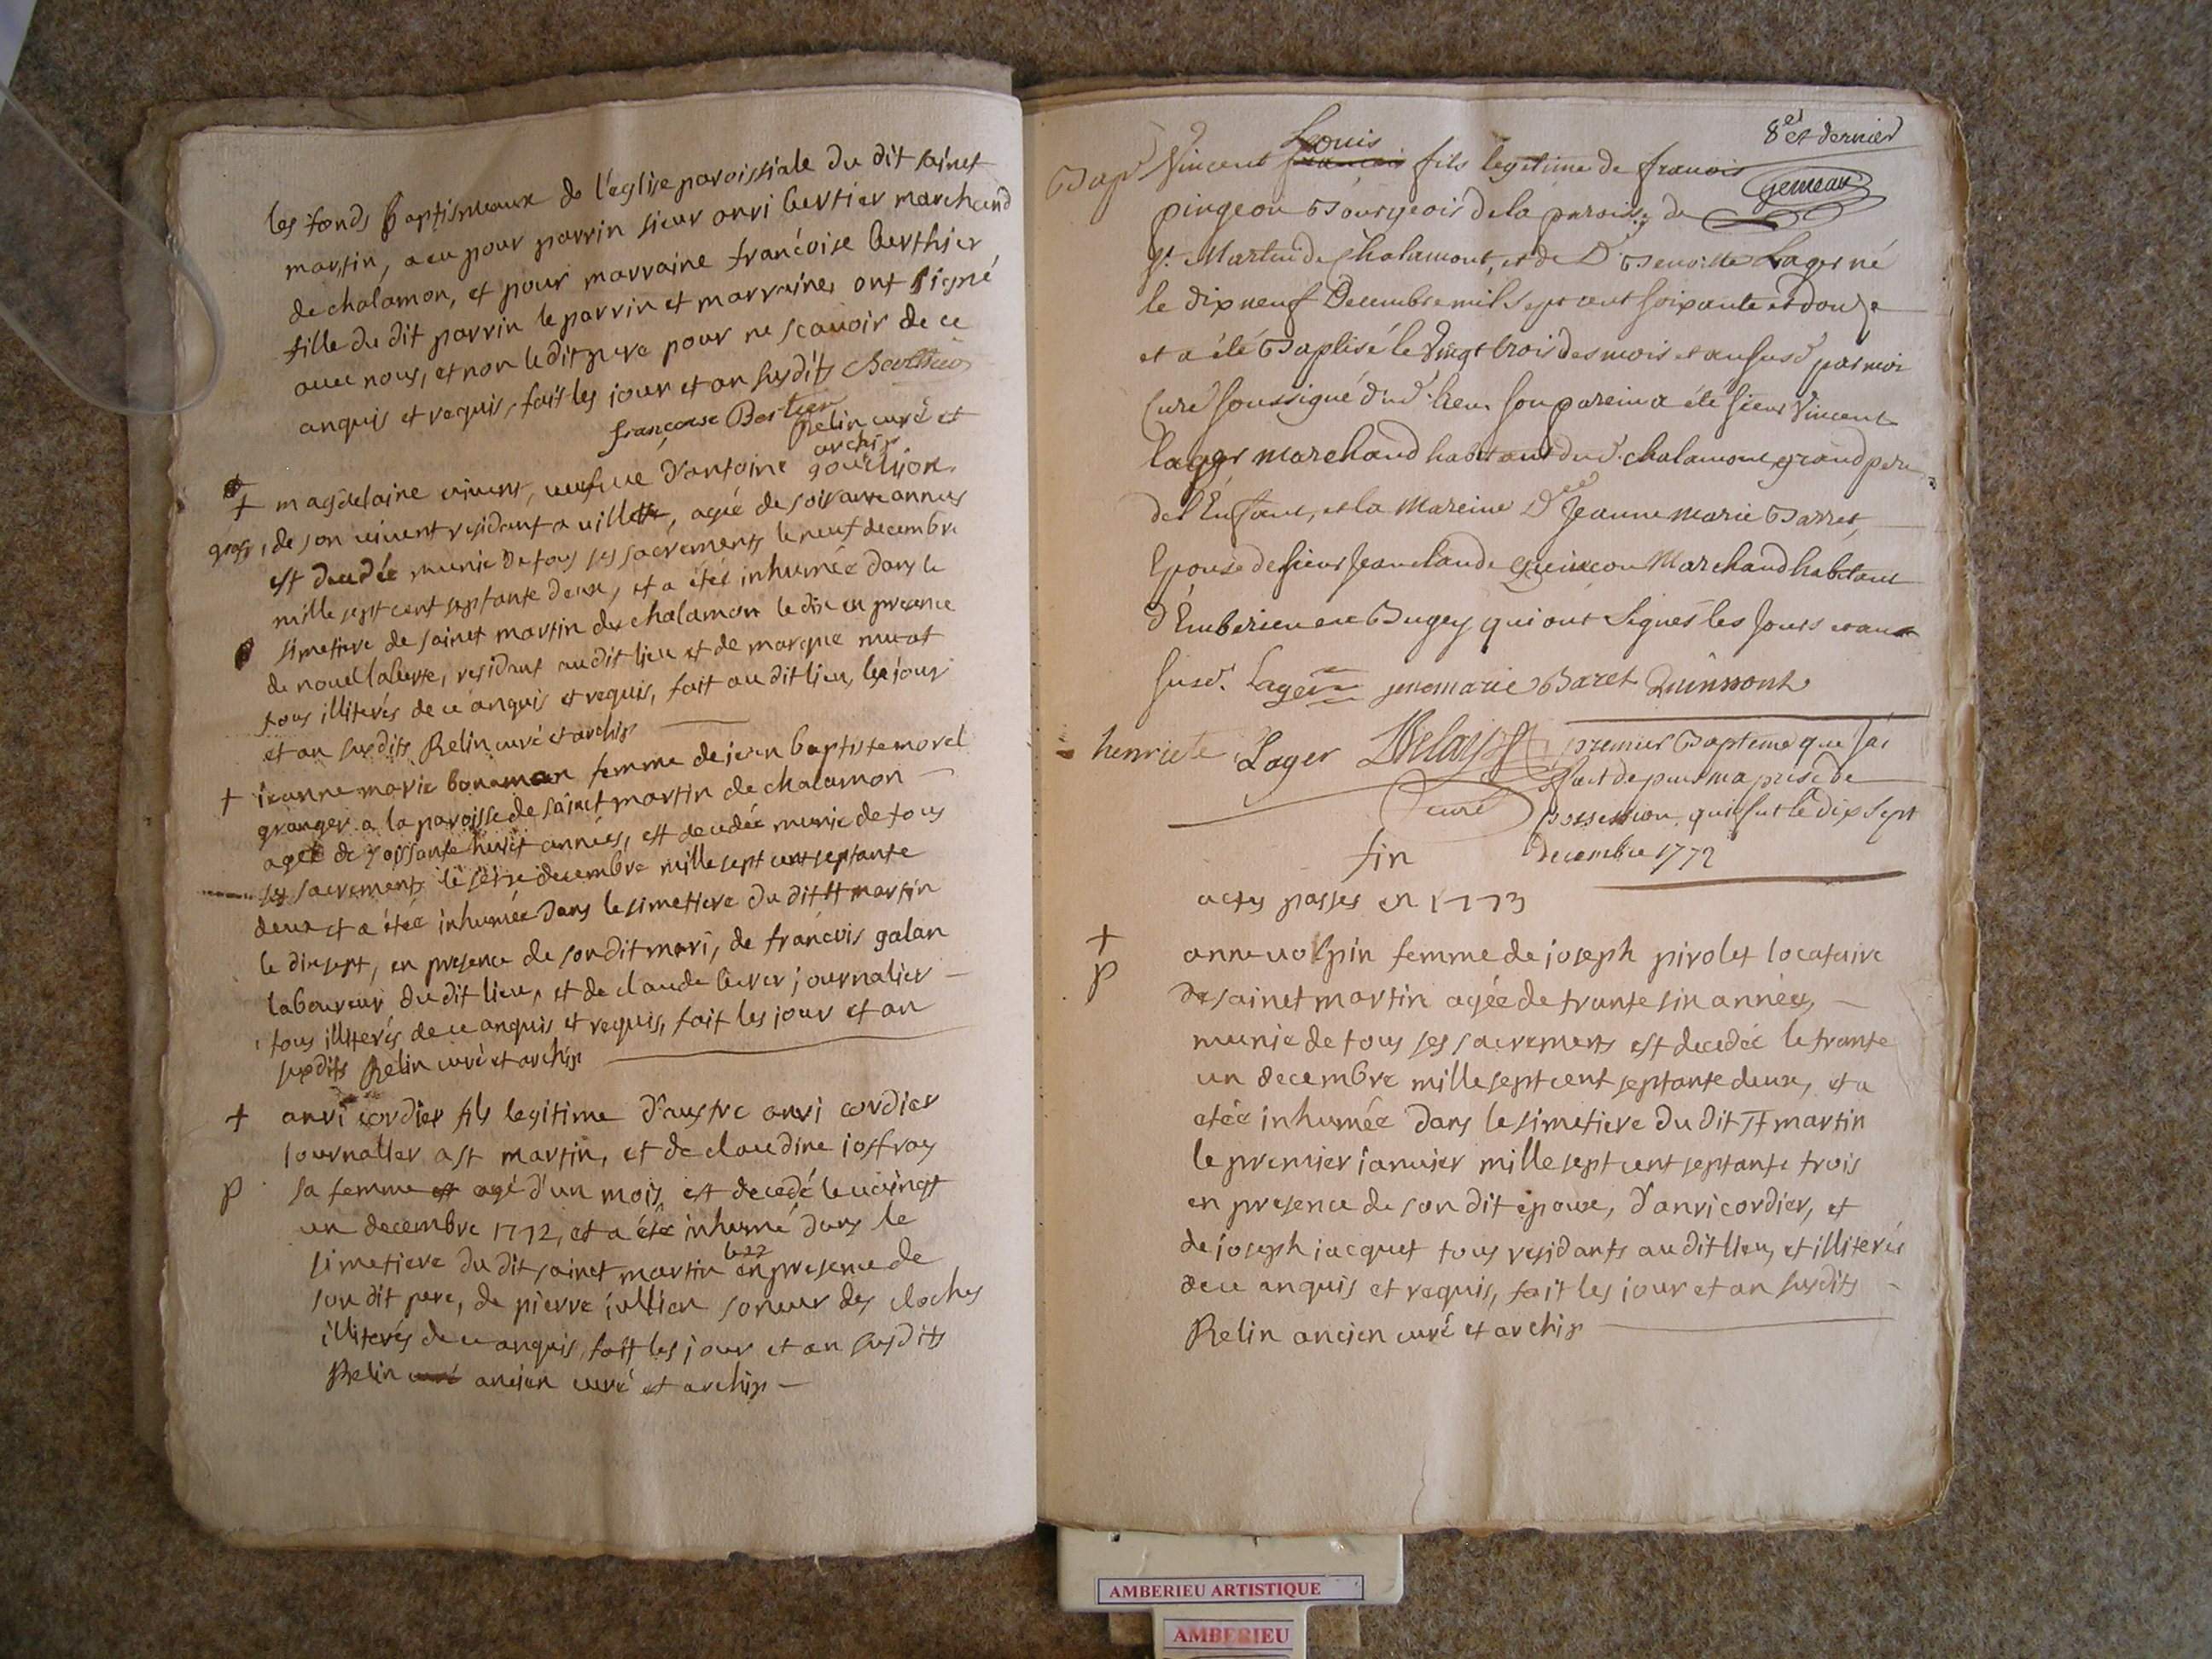 les fonds baptismaux de l'eglise paroissiale du dit sainct
martin, a eu pour parrin sieur anri bertier marchand
de chalamon, et pour marraine francoise berthier
fille du dit parrin le parrin et marraine, ont signé
avec nous, et non le dit pere pour ne scavoir de ce
anquis et requis, fait les jour et an susdits Berthier
francoise Bertier Relin curé et
archip
+ magdelaine vivent, veufve d'antoine gourlion
de son vivent residant a villette, agée de soisante annees
est decedée munie de tous ses sacrements le neuf decembre
mille sept cent septante deux, et a étée inhumée dans le
simetiere de sainct martin de chalamon le dix en presence
de nouel laberte, residant au dit lieu et de marque murat
tous illiterés de ce anquis et requis, fait au dit lieu, les jour
et an susdits Relin curé et archip
+ jeanne marie bonaman femme de jean baptiste morel
granger a la paroisse de sainct martin de chalamon
agée de soissante huict années, est decedée munie de tous
ses sacrements le seize decembre mille sept cent septante
deux et a étée inhumée dans le simetiere du dit st martin
le dix sept, en presence de son dit mari, de francois galan
laboureur du dit lieu, et de claude journalier
tous illiterés de ce anquis et requis, fait les jour et an
susdits Relin curé et archip
+ anri cordier fils legitime d'austre anri cordier
journallier a st martin, et de claudine josfray
p sa femme est agé d'un mois est decedé le vaingt
un decembre 1772, et a été inhumé dans le
le 22
simetiere du dit sainct martin en presence de
son dit pere, de pierre jullien soneur des cloches
illiterés de ce anquis, fait les jour et an susdits
Relin curé ancien curé et archip
8e et dernier
gemeau
Louis
Bap Vincent francois fils legitime de francois
pingeon Bourgeois de la paroisse de
St. Martin de Chalamont, et de De Benoitte Lager né
le dix neuf Decembre mil sept cent soixante et douze
et a été Baptisé le Vingt trois des mois et an susd. par moi
Curé soussigné dud. lieu. son parein a été sieur Vincent
lager marchand habitant dud. chalamont grand pere
de l'Enfant, et la Mareine Dee Jeanne Marie Barret
Epouse de sieur Jean claude Marchand habitant
d'Emberieu en Bugey qui ont Signés les Jours et an
susd. Lager jenemarie Baret
henriete Lager
curé
premier Baptême que J'ai
fait depuis ma prise de
possession, qui fut le dix sept
Decembre 1772
fin
actes passes en 1773
+ anne volpin femme de joseph pirolet locataire
p de sainct martin agée de trante six années,
munie de tous ses sacrements est decedée le trante
un decembre mille sept cent septante deux, et a
etée inhumée dans le simetiere du dit st martin
le premier janvier mille sept cent septante trois
en presence de son dit epoux, d'anri cordier, et
de joseph jacquet tous residants au dit lieu, et illiterés
de ce anquis et requis, fait les jour et an susdits
Relin ancien curé et archip
AMBERIEU ARTISTIQUE
AMBERIEU